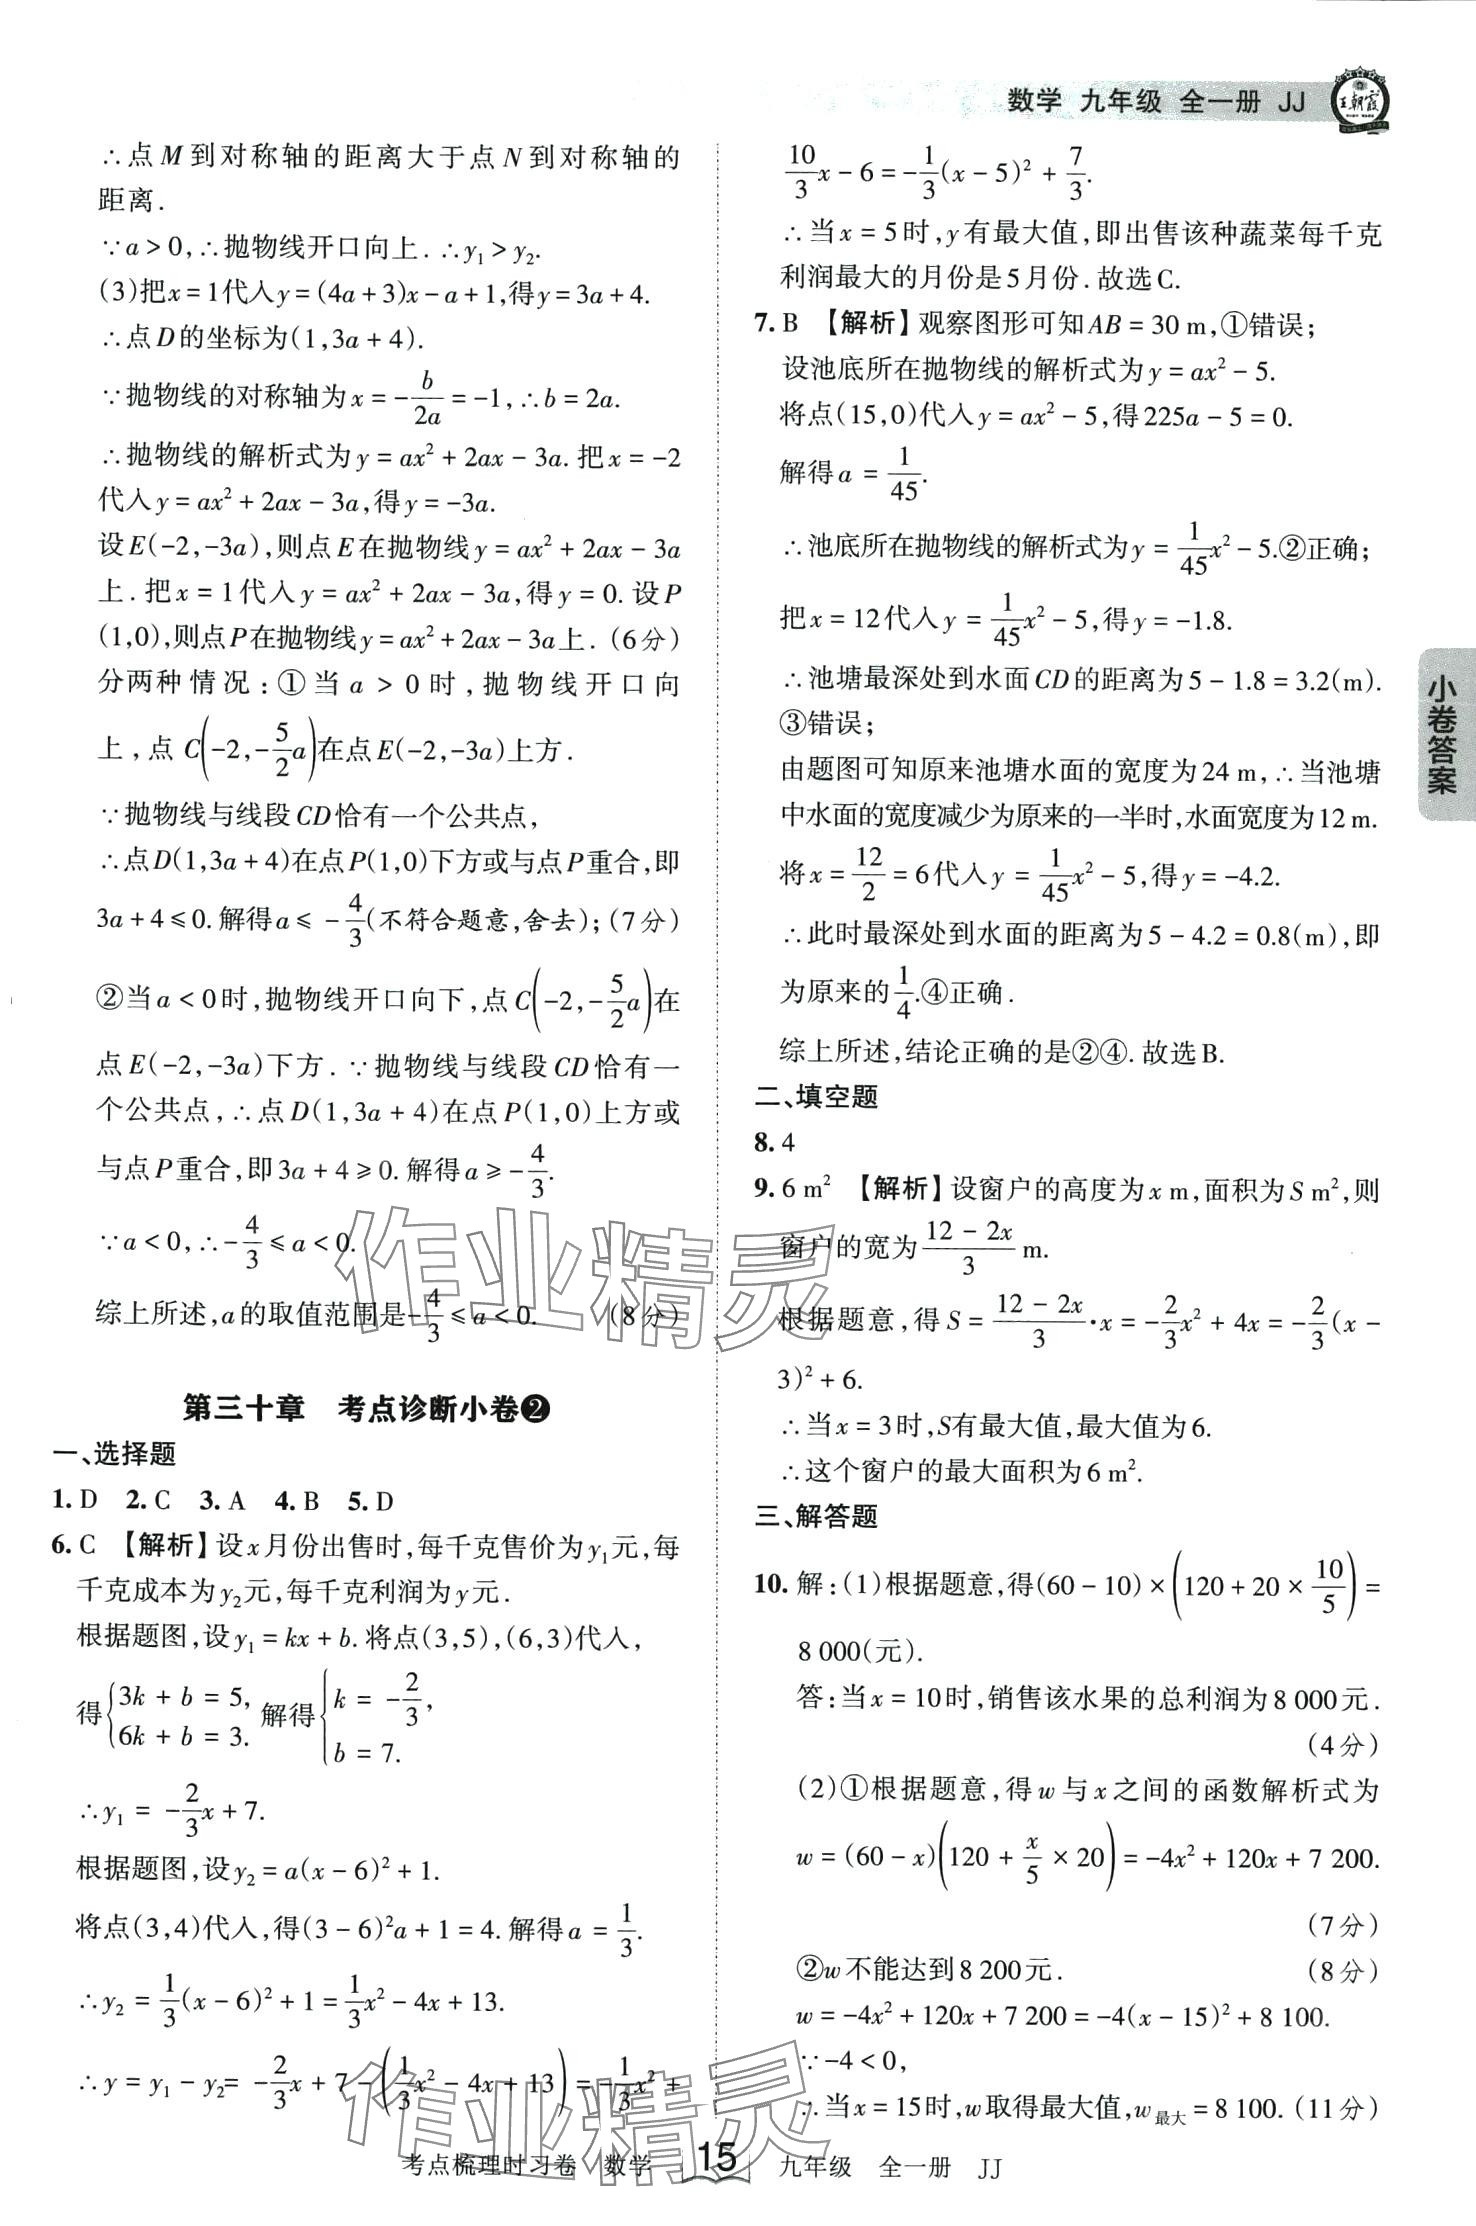 数学 九年级 全一册 JJ
王朝霞
∴点M到对称轴的距离大于点N到对称轴的
距离.
∵a>0,∴抛物线开口向上.∴y₁>y₂.
(3)把x=1代入y=(4a+3)x-a+1,得y=3a+4.
∴点D的坐标为(1,3a+4).
∵抛物线的对称轴为x=-b/2a=-1,∴b=2a.
∴抛物线的解析式为y=ax²+2ax-3a.把x=-2
代入y=ax²+2ax-3a,得y=-3a.
设E(-2,-3a),则点E在抛物线y=ax²+2ax-3a
上.把x=1代入y=ax²+2ax-3a,得y=0.设P
(1,0),则点P在抛物线y=ax²+2ax-3a上.(6分)
分两种情况:①当a>0时,抛物线开口向
上,点C(-2,-5/2a)在点E(-2,-3a)上方.
∵抛物线与线段CD恰有一个公共点,
∴点D(1,3a+4)在点P(1,0)下方或与点P重合,即
3a+4≤0.解得a≤-4/3(不符合题意,舍去);(7分)
②当a<0时,抛物线开口向下,点C(-2,-5/2a)在
点E(-2,-3a)下方.∵抛物线与线段CD恰有一
个公共点,∴点D(1,3a+4)在点P(1,0)上方或
与点P重合,即3a+4≥0.解得a≥-4/3.
∵a<0,∴-4/3≤a<0.
综上所述,a的取值范围是-4/3≤a<0. (8分)
第三十章 考点诊断小卷❷
一、选择题
1.D 2.C 3.A 4.B 5.D
6.C 【解析】设x月份出售时,每千克售价为y₁元,每
千克成本为y₂元,每千克利润为y元.
根据题图,设y₁=kx+b.将点(3,5),(6,3)代入,
得{3k+b=5, 6k+b=3. 解得{k=-2/3, b=7.
∴y₁=-2/3x+7.
根据题图,设y₂=a(x-6)²+1.
将点(3,4)代入,得(3-6)²a+1=4.解得a=1/3.
∴y₂=1/3(x-6)²+1=1/3x²-4x+13.
∴y=y₁-y₂=-2/3x+7-(1/3x²-4x+13)=-1/3x²+
10/3x-6=-1/3(x-5)²+7/3.
∴当x=5时,y有最大值,即出售该种蔬菜每千克
利润最大的月份是5月份.故选C.
7.B 【解析】观察图形可知AB=30 m,①错误;
设池底所在抛物线的解析式为y=ax²-5.
将点(15,0)代入y=ax²-5,得225a-5=0.
解得a=1/45.
∴池底所在抛物线的解析式为y=1/45x²-5.②正确;
把x=12代入y=1/45x²-5,得y=-1.8.
∴池塘最深处到水面CD的距离为5-1.8=3.2(m).
③错误;
由题图可知原来池塘水面的宽度为24 m,∴当池塘
中水面的宽度减少为原来的一半时,水面宽度为12 m.
将x=12/2=6代入y=1/45x²-5,得y=-4.2.
∴此时最深处到水面的距离为5-4.2=0.8(m),即
为原来的1/4.④正确.
综上所述,结论正确的是②④.故选B.
二、填空题
8.4
9.6 m² 【解析】设窗户的高度为x m,面积为S m²,则
窗户的宽为(12-2x)/3 m.
根据题意,得S=(12-2x)/3·x=-2/3x²+4x=-2/3(x-
3)²+6.
∴当x=3时,S有最大值,最大值为6.
∴这个窗户的最大面积为6 m².
三、解答题
10.解:(1)根据题意,得(60-10)×(120+20×10/5)=
8 000(元).
答:当x=10时,销售该水果的总利润为8 000元.
(4分)
(2)①根据题意,得w与x之间的函数解析式为
w=(60-x)(120+x/5×20)=-4x²+120x+7 200.
(7分)
②w不能达到8 200元. (8分)
w=-4x²+120x+7 200=-4(x-15)²+8 100.
∵-4<0,
∴当x=15时,w取得最大值,w最大=8 100.(11分)
小卷答案
作业精灵
作业精灵
考点梳理时习卷 数学 15 九年级 全一册 JJ